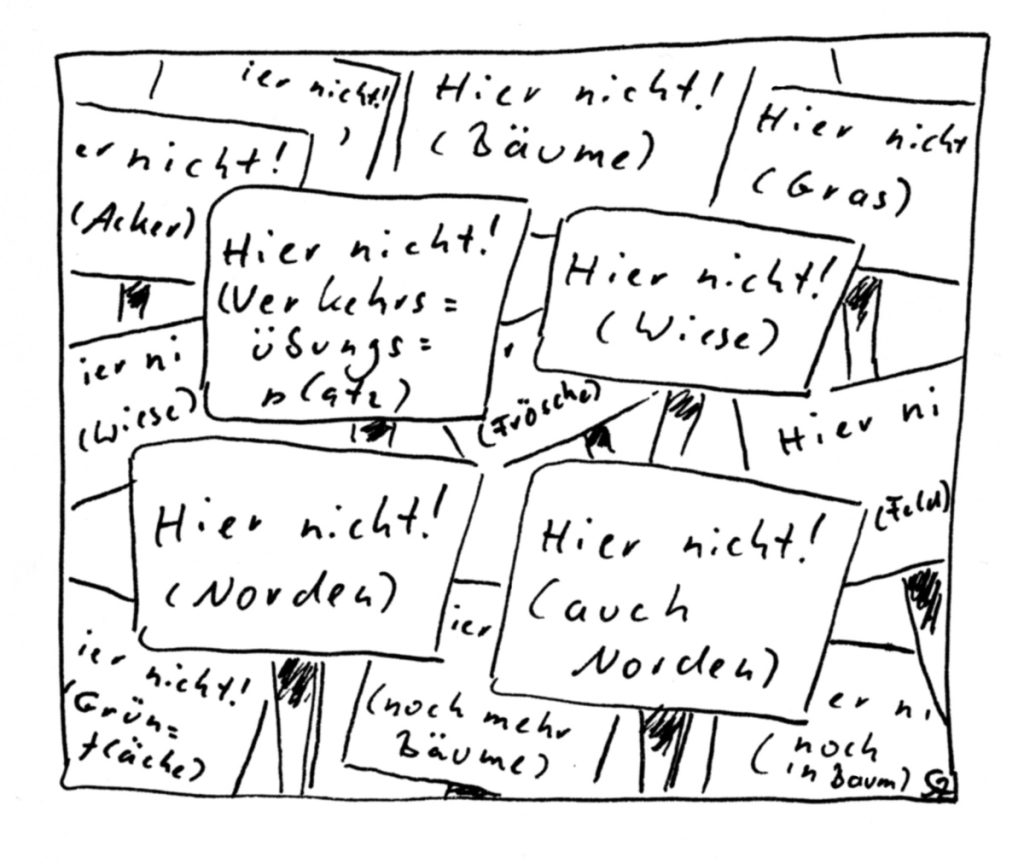 ier nicht!
Hier nicht!
(Bäume)
Hier nicht
(Gras)
er nicht!
(Acker)
Hier nicht!
(Verkehrs=
übungs=
platz)
Hier nicht!
(Wiese)
ier ni
(Wiese)
(Frösche)
Hier ni
(Feld)
Hier nicht!
(Norden)
Hier nicht!
(auch
Norden)
ier nicht!
(Grün=
fläche)
ier
(noch mehr
Bäume)
er ni
(noch
in Baum)